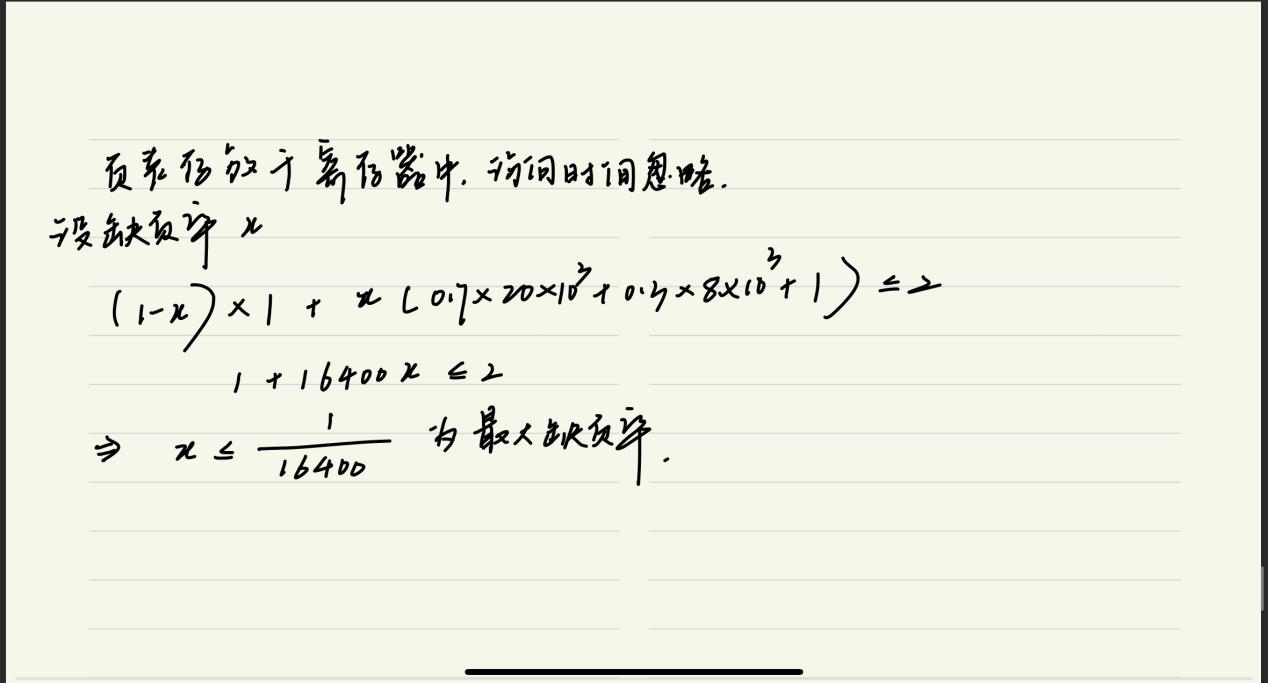 页表存放于寄存器中. 访问时间忽略.
设缺页率 x
(1-x) × 1 + x (0.7 × 20×10³ + 0.3 × 8×10³ + 1) ≤ 2
1 + 16400 x ≤ 2
⇒ x ≤ 1/16400 为最大缺页率.